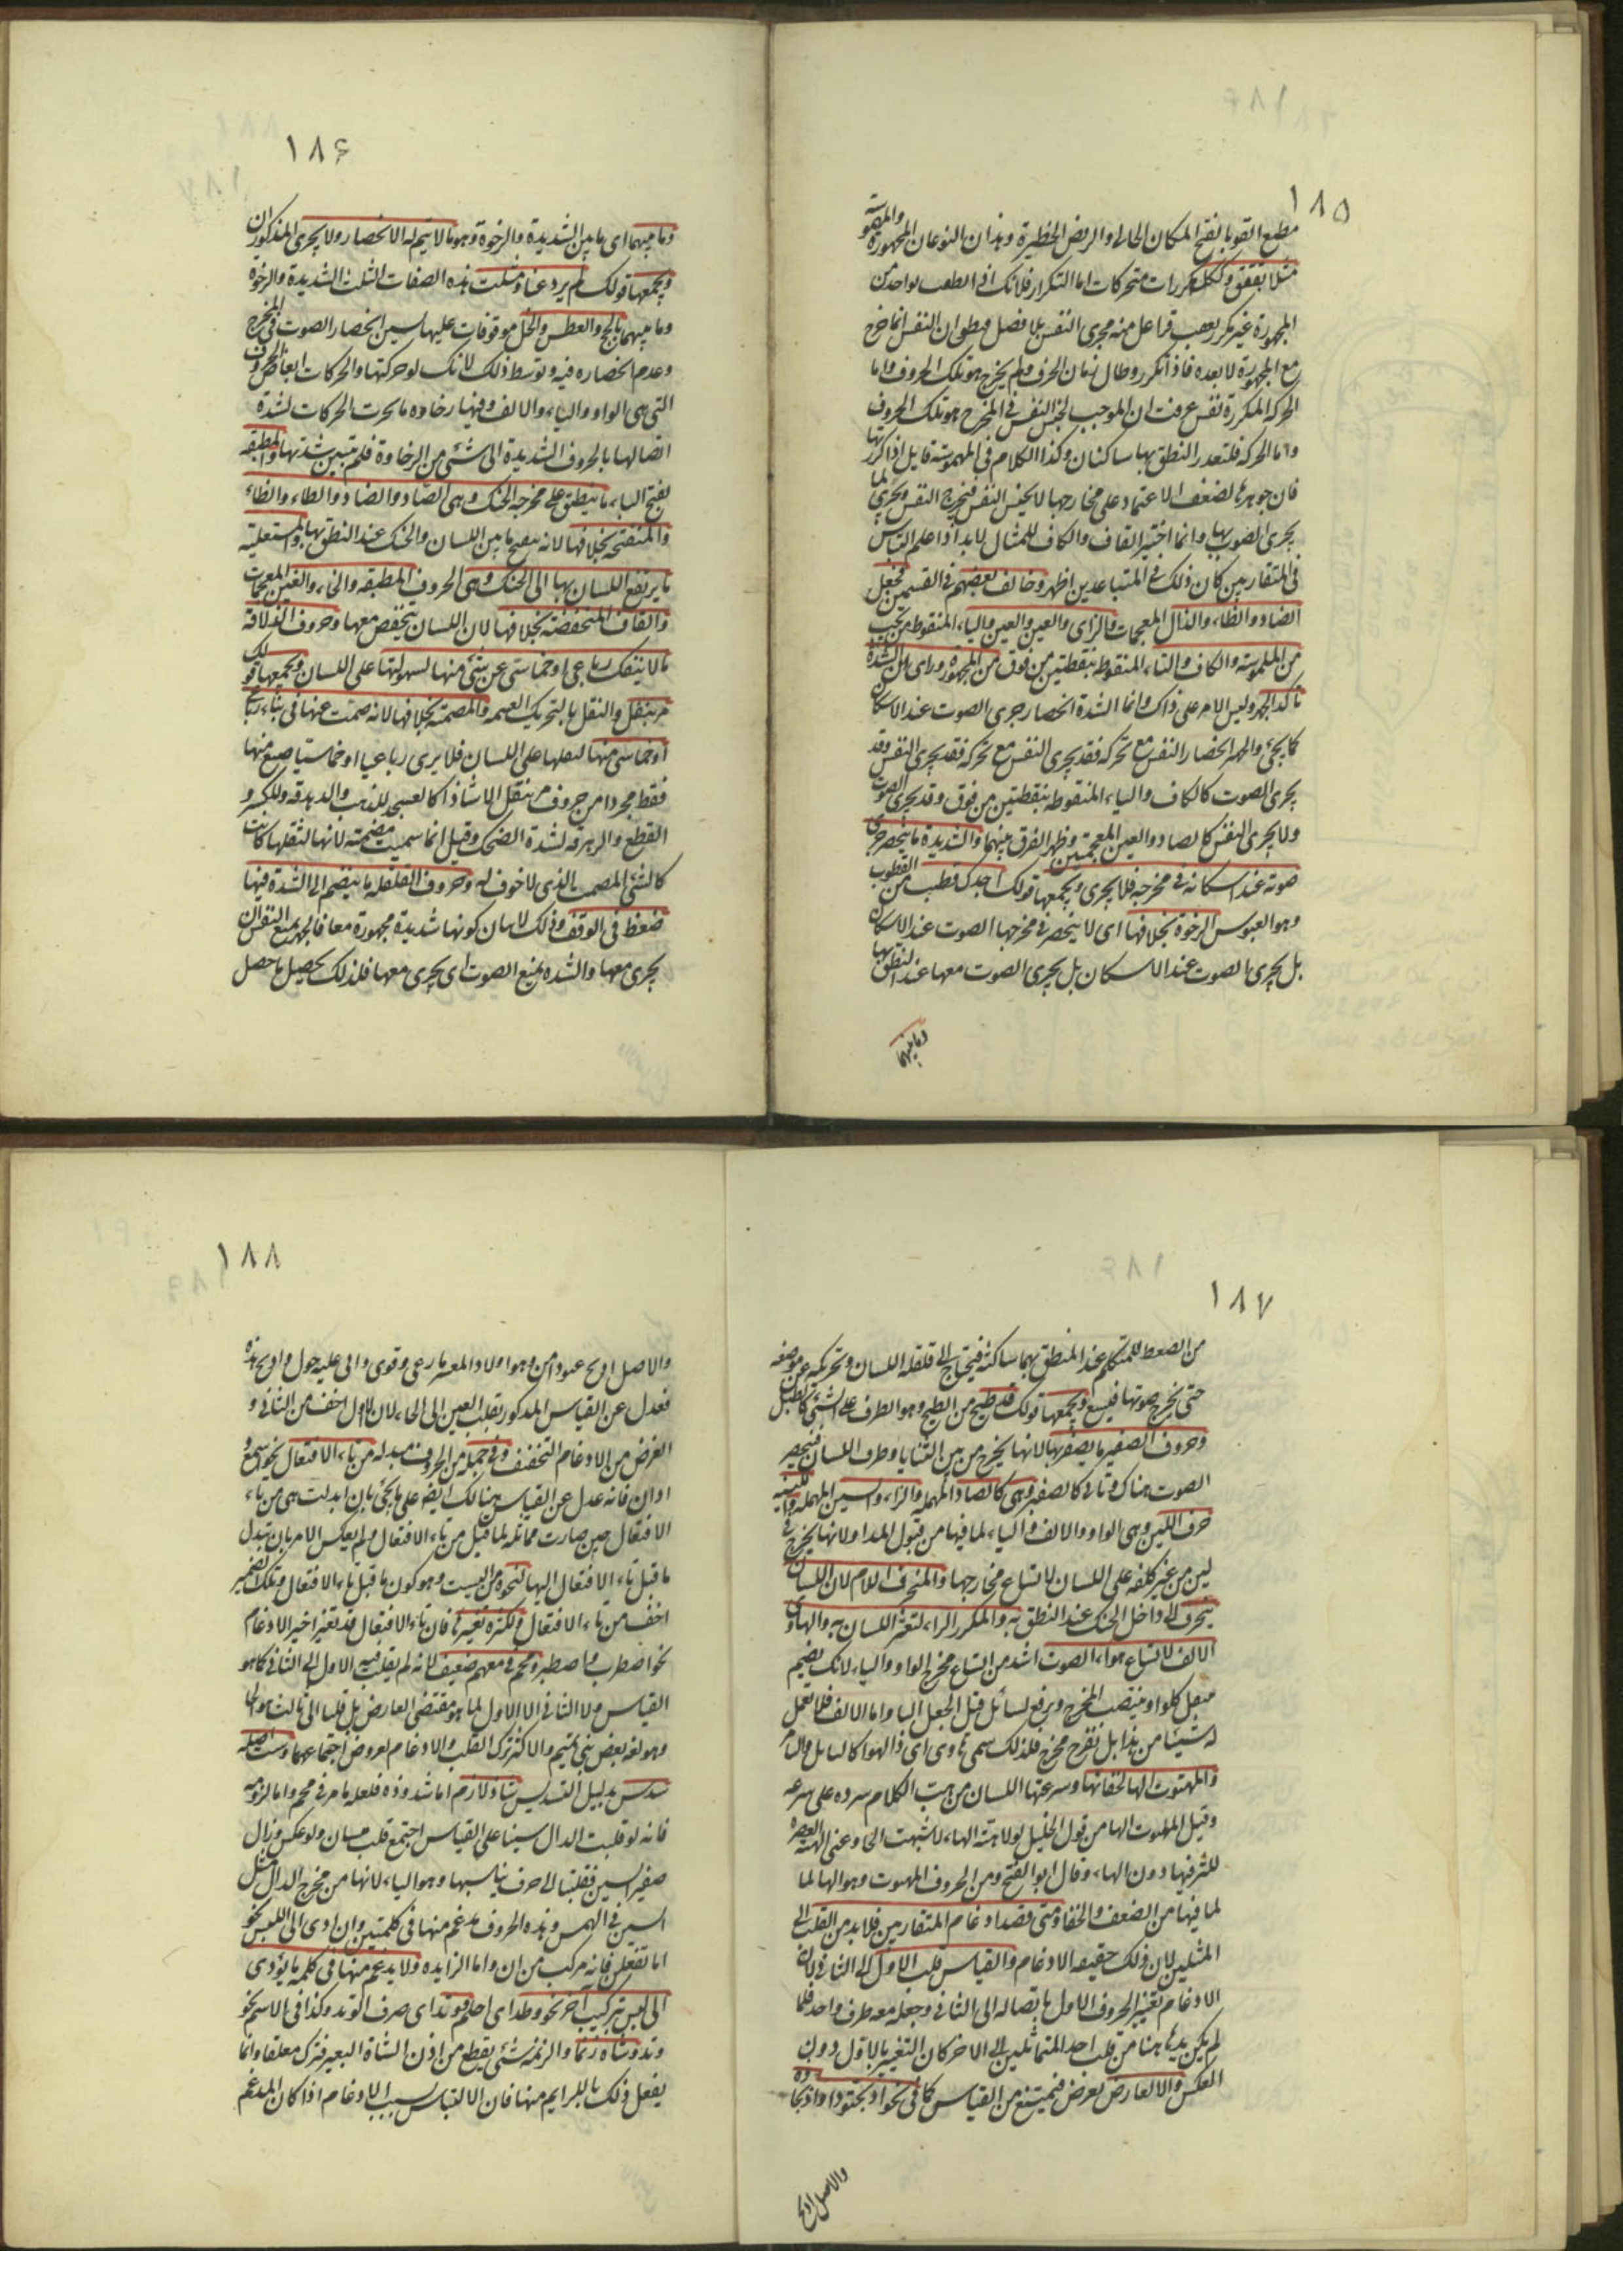 ١٨٥
مطلع القوبا بفتح المكان الخالى والربض الخطيرة وهذان النوعان المجهورة والمهموسة
مثلا بققق وككك مكررات متحركات اما التكرار فلانك اذا نطقت بواحد من
المجهورة غير مكرر فعقب فراغك منه يجرى النفس بلا فصل فيظن ان النفس انما خرج
مع المجهورة لا بعده فاذا تكرر وطال زمان الحرف ولم يخرج هو تلك الحروف واما
الحركة المكررة نفس عرفت ان الموجب لحبس النفس فى المخرج هو تلك الحروف
واما الحركة فلتعذر النطق بها ساكنان وكذا الكلام فى المهموسة قايل اذا كررتها
فان جوهرها لضعف الاعتماد على مخارجها لا يحبس النفس فيخرج النفس ويجرى كما
يجرى الصوت بها وانما اختير القاف والكاف للمثال لانه اذا علم التباس
فى المتقاربين كان ذلك فى المتباعدين اظهر وخالف بعضهم فى القسمين فجعل
الضاد والظاء والذال المعجمات والزاى والعين والغين والياء المنقوطة من تحت
من المهموسة والكاف والتاء المنقوطة بنقطتين من فوق من المجهورة وراى ان الشدة
تاكد الجهر وليس الامر على ذاك وانما الشدة انحصار جرى الصوت عند الاسكان
كما يجئ والجهر انحصار النفس مع تحركه فقد يجرى النفس مع تحركه فقد يجرى النفس وقد
يجرى الصوت كالكاف والتاء المنقوطة بنقطتين من فوق وقد يجرى الصوت
ولا يجرى النفس كالضاد والغين المعجمتين وظهر الفرق بينهما والشديدة ما ينحصر جرى
صوته عند اسكانه فى مخرجه فلا يجرى ويجمعها قولك اجدك قطبت من القطوب
وهو العبوس والرخوة بخلافها اى لا ينحصر فى مخرجها الصوت عند الاسكان
بل يجرى الصوت عند الاسكان بل يجرى الصوت معها عند النطق بها
وما بينهما
١٨۶
وما بينهما اى ما بين الشديدة والرخوة وهو ما لا يتم له الانحصار ولا يجرى المذكوران
ويجمعها قولك لم يرد عنا ومثلت هذه الصفات الثلث الشديدة والرخوة
وما بينهما بالحج والطش والخل موقوفات عليها ليتبين انحصار الصوت فى المخرج
وعدم انحصاره فيه وتوسط ذلك لانك لو حركتها والحركات ابعاض الحروف
التى هى الواو والياء والالف وفيها رخاوة ما لجرت الحركات لشدة
اتصالها بالحروف الشديدة الى شئ من الرخاوة فلم تتبين شدتها والمطبقة
بفتح الباء ما ينطبق على مخرجه الحنك وهى الصاد والضاد والطاء والظاء
والمنفتحة بخلافها لانه ينفتح ما بين اللسان والحنك عند النطق بها والمستعلية
ما يرتفع اللسان بها الى الحنك وهى الحروف المطبقة والخاء والغين المعجمات
والقاف المنخفضة بخلافها لان اللسان ينخفض معها وحروف الذلاقة
ما لا ينفك رباعى او خماسى عن شئ منها لسهولتها على اللسان ويجمعها قولك
مر بنفل والنفل بالتحريك الغنيمة والمصمتة بخلافها لانه صمت عنها فى بناء رباعى
او خماسى منها لثقلها على اللسان فلا يرى رباعيا او خماسيا صيغ منها
فقط مجردا من حروف مر بنفل الا شاذا كالعسجد للذهب والدهدقة وللكسر و
القطع والزهزقة لشدة الضحك وقيل انما سميت مصمتة لانها لثقلها كانت
كالشئ المصمت الذى لا جوف له وحروف القلقلة ما ينضم الى الشدة فيها
ضغط فى الوقف وذلك لابيان كونها شديدة مجهورة معا فالجهر يمنع النفس ان
يجرى معها والشدة يمنع الصوت ان يجرى معها فلذلك يحصل ما حصل
١٨٧
من الضغط للمتكلم عند المنطق بهما ساكنة فيحتاج الى قلقلة اللسان وتحريكه عن موضعه
حتى يخرج صوتها فيسمع ويجمعها قولك قد طبج من الطبج وهو الضرب على الشئ كالطبل
وحروف الصفير ما يصفر بها لانها يخرج من بين الثنايا وطرف اللسان فينحصر
الصوت هناك وتأتى كالصفير وهى كالصاد المهملة والزاء والسين المهملة واللينة
حرف اللين وهى الواو والالف والياء لما فيها من قبول المد او لانها يخرج فى
لين من غير كلفة على اللسان لاتساع مخارجها والمنحرف اللام لان اللسان
ينحرف الى داخل الحنك عند النطق به والمكرر الراء لتعثر اللسان به والهاوى
الالف لاتساع هواء الصوت اشد من اتساع مخرج الواو والياء لانك يضم
فلا تعمل
له شيئا من هذا بل تفرج مخرجه فلذلك سمى هاوى اى ذا الهوا كالنابل والتامر
والمهتوت الها لخفائها وسرعتها اللسان من هت الكلام سرده على سرعة
وقيل المهتوت الها من قول الخليل لولا هتة الها لاشبهت الحا وعنى الهتة العصرة
للتى فيها دون الهاء وقال ابو الفتح ومن الحروف المهتوت وهو الها لما
لما فيها من الضعف والخفا ومتى قصد ادغام المتقاربين فلا بد من القلب الى
المثلين لان ذلك حقيقة الادغام والقياس قلب الاول الى الثانى لان
الادغام تغيير الحروف الاول باتصاله الى الثانى وجعله معه طرف واحد فلما
لم يكن بد هاهنا من قلب احد المتماثلين الى الاخر كان التغيير بالاول دون
العكس والا لعارض يعرض فيمتنع من القياس كما فى نحو اذبحتودا واذبحاذه
والاصل اذبح
١٨٨
والاصل اذبح عتودا من وهو اولاد المعز ما رعى وقوى واتى عليه حول واذبح هذه
فعدل عن القياس المذكور بقلب العين الى الحاء لان الاول اخف من الثانى و
الغرض من الادغام التخفيف وفى جملة من الحروف مبدلة من تاء الافتعال نحو اسمع و
ادان فانه عدل عن القياس هنالك ايضا على ما يجئ بان ابدلت هى من تاء
الافتعال حين صارت مماثلة لما قبل من تاء الافتعال ولم يعكس الامر بان تبدل
ما قبل تاء الافتعال اليها لنحوه من اليست وهو كون ما قبل تاء الافتعال وتلك الضمير
اخف من تاء الافتعال ولكثرة تغيرها فان تاء الافتعال قد تغير اخير الادغام
نحو اضطرب واصطبر ومحم فى معهم ضعيف لانه لم يقلب فيه الاول الى الثانى كما هو
القياس ولا الثانى الى الاول لما هو مقتضى العارض بل قلبا الى ثالث هو الحا
وهو لغة بعض بنى تميم والاكثر ترك القلب والادغام لعروض اجتماعهما وست اصله
سدس بدليل التسديس شاذ لازم اما شذوذه فلعله ما مر فى محم واما لزومه
فانه لو قلبت الدال سينا على القياس اجتمع قلب سينان ولو عكس وزال
صفير السين فقلبتا الى حرف يناسبها وهو التاء لانها من مخرج الدال مثل
السين فى الهمس وهذه الحروف يدغم منها فى كلمتين وان ادى الى اللبس نحو
اما تفعلن فانه مركب من ان واما الزايدة ولا يدغم منها فى كلمة ما يؤدى
الى لبس بتركيب آخر نحو وطد اى احكم ووتد اى ضرب الوتد وكذا فى الاسم نحو
وتد وشاة زنما والزنمة شئ يقطع من اذن الشاة البعير فترك معلقا وانما
يفعل ذلك بالكرايم منها فان الالتباس بسبب الادغام اذا كان المدغم